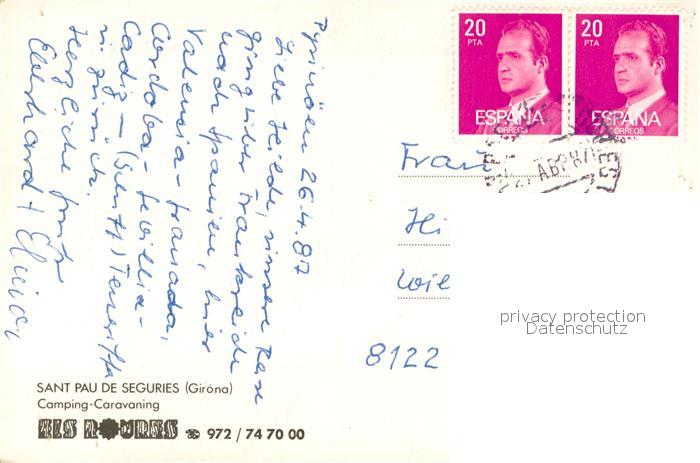 Pyrinäen 26.4.87
Liebe Hilde, unsere Reise
ging über Frankreich
nach Spanien, hier
Valencia - Granada,
Cordoba - Sevillia -
Cadiz - Teneriffa
u. zurück.
Herzliche Grüße
Eberhard +
20
PTA
ESPAÑA
CORREOS
20
PTA
ESPAÑA
CORREOS
ABR 87
Frau
Hi
Wil
8122
privacy protection
Datenschutz
SANT PAU DE SEGURIES (Giróna)
Camping-Caravaning
ELS ROURES ☎ 972 / 74 70 00